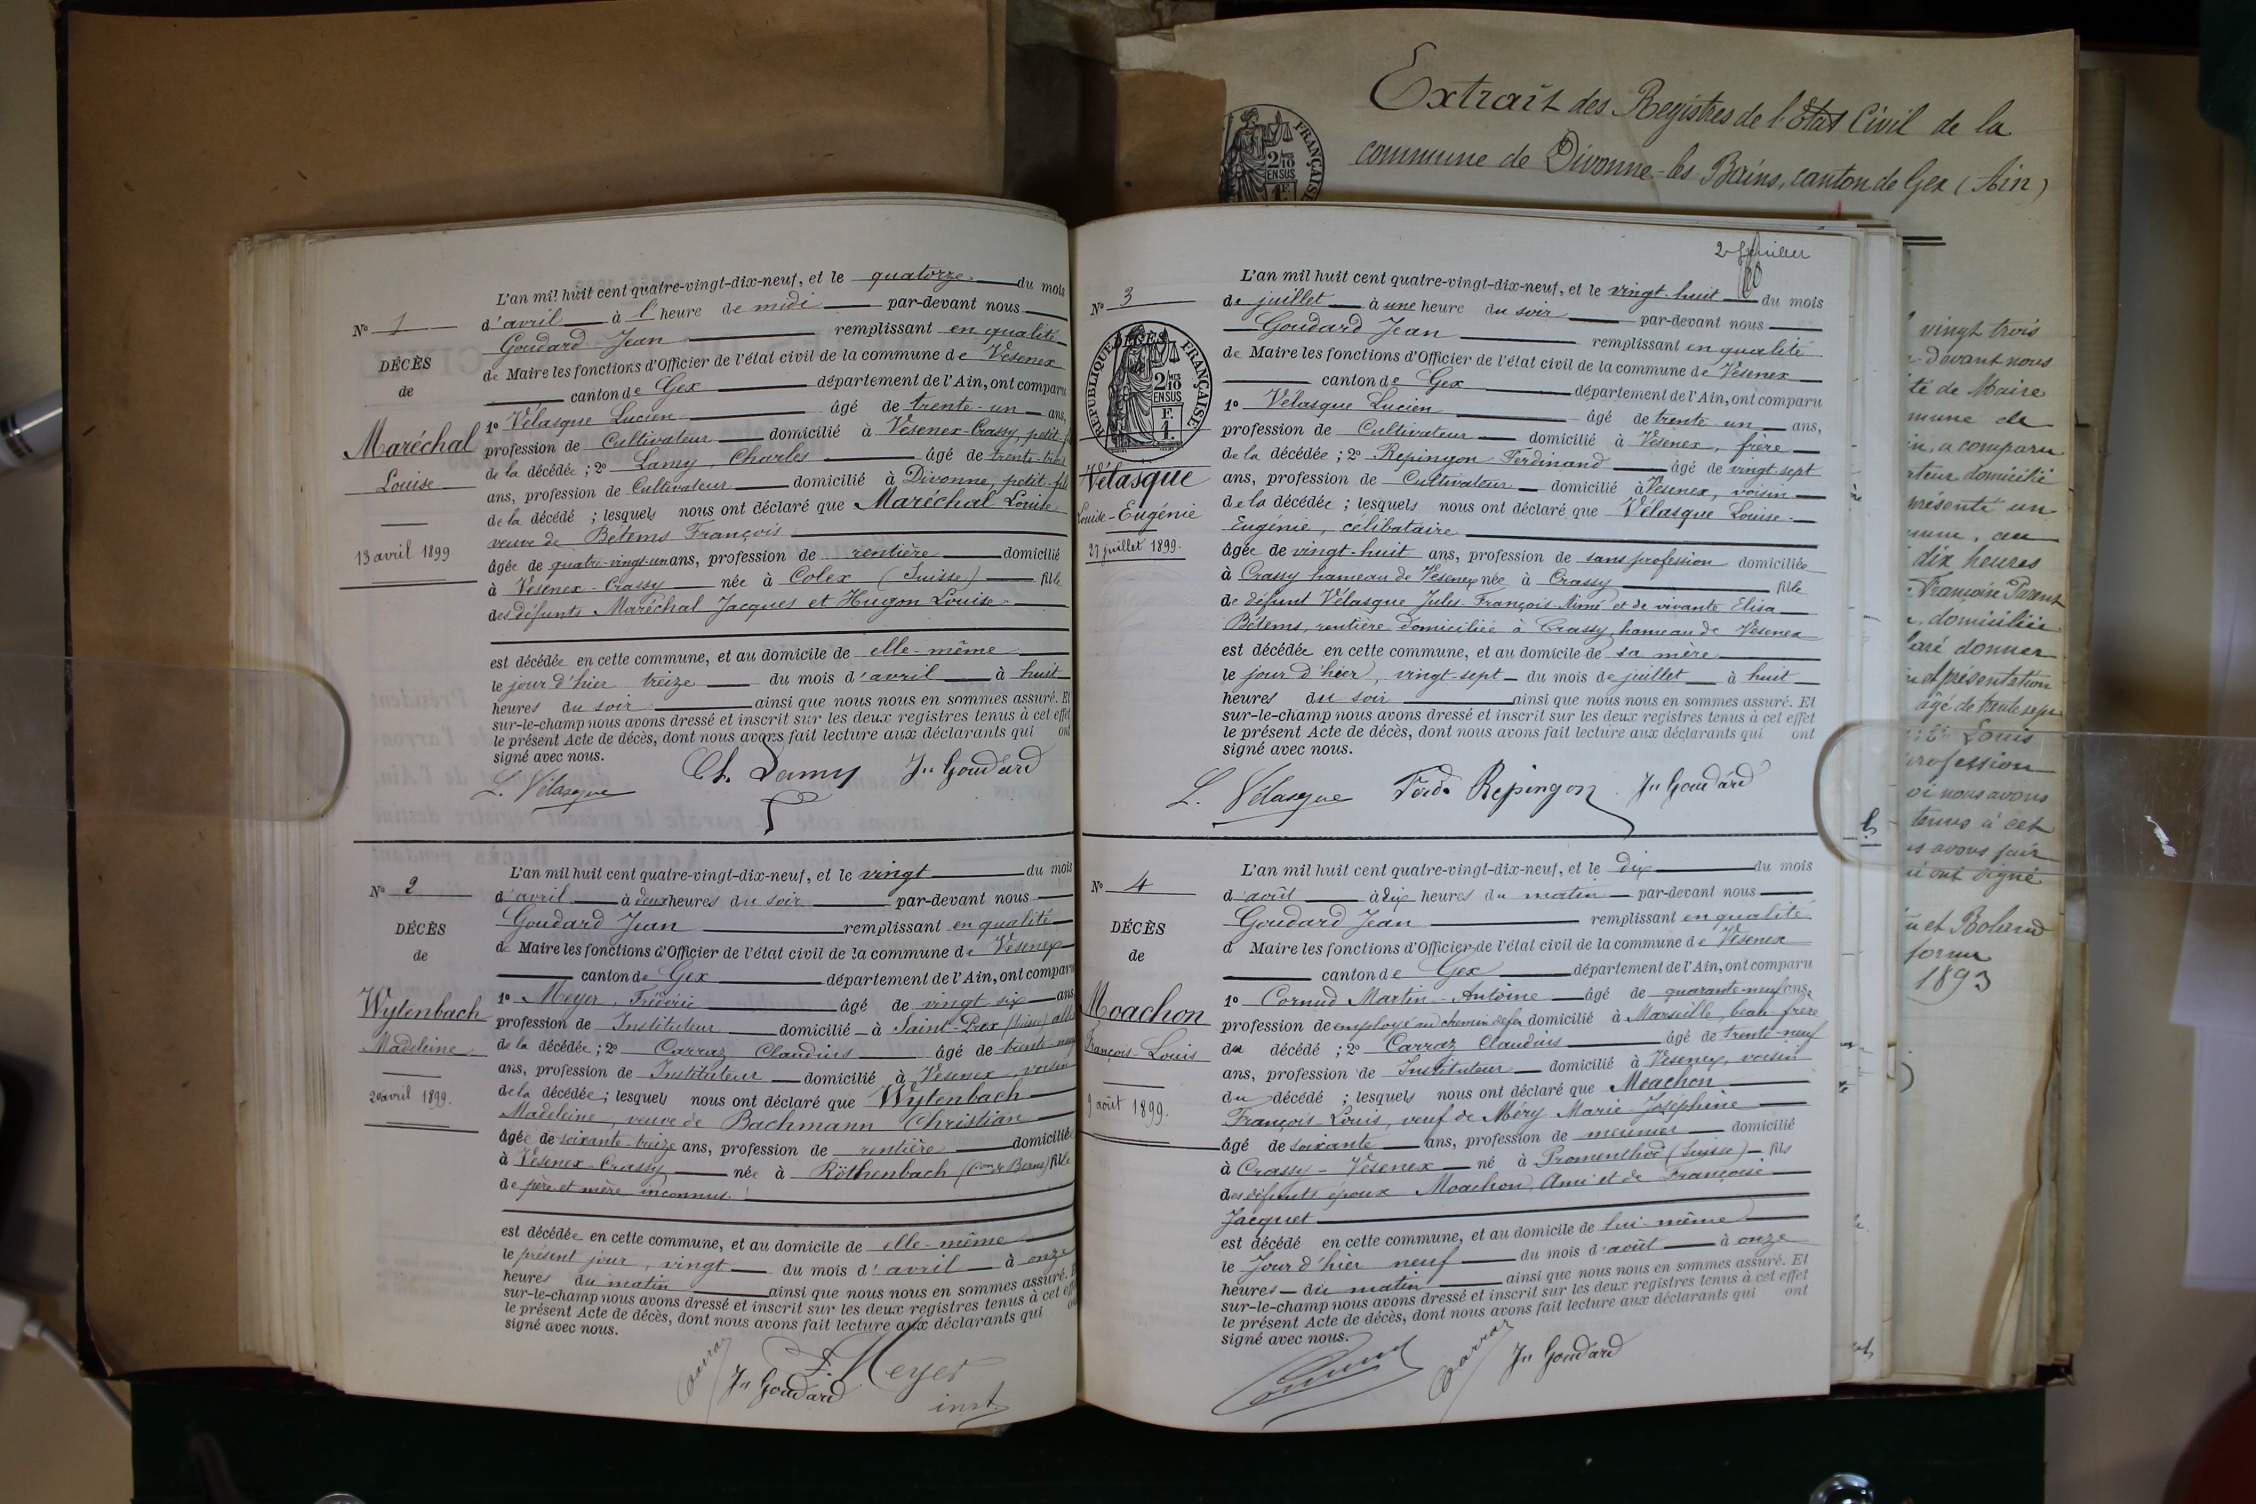 Extrait des Registres de l'Etat Civil de la
commune de Divonne-les-Bains, canton de Gex (Ain)
L'an mil huit cent quatre-vingt-dix-neuf, et le quatorze du mois
d'avril à l'heure de midi par-devant nous
Goudard Jean remplissant en qualité
de Maire les fonctions d'Officier de l'état civil de la commune de Vésenex
canton de Gex département de l'Ain, ont comparu
1º Vélasque Lucien âgé de trente-un ans,
profession de Cultivateur domicilié à Vésenex-Crassy, petit-
de la décédée ; 2º Lamy, Charles âgé de trente-trois
ans, profession de Cultivateur domicilié à Divonne, petit-fils
de la décédé ; lesquels nous ont déclaré que Maréchal Louise
veuve de Bétems François
âgée de quatre-vingt-un ans, profession de rentière domicilié
à Vésenex-Crassy née à Colex (Suisse) fille
des défunts Maréchal Jacques et Hugon Louise
est décédée en cette commune, et au domicile de elle-même
le jour d'hier treize du mois d'avril à huit
heures du soir ainsi que nous nous en sommes assuré. Et
sur-le-champ nous avons dressé et inscrit sur les deux registres tenus à cet effet
le présent Acte de décès, dont nous avons fait lecture aux déclarants qui ont
signé avec nous.
L. Vélasque Ch. Lamy Jn Goudard
Nº 1
DÉCÈS
de
Maréchal
Louise
13 avril 1899
L'an mil huit cent quatre-vingt-dix-neuf, et le vingt du mois
d'avril à deux heures du soir par-devant nous
Goudard Jean remplissant en qualité
de Maire les fonctions d'Officier de l'état civil de la commune de Vésenex
canton de Gex département de l'Ain, ont comparu
1º Meyer, Fréderic âgé de vingt six ans
profession de Instituteur domicilié à Saint-Prex (Suisse) allié
de la décédée ; 2º Carraz Claudius âgé de trente-neuf
ans, profession de Instituteur domicilié à Vésenex, voisin
de la décédée ; lesquels nous ont déclaré que Wytenbach
Madeleine, veuve de Bachmann Christian
âgée de soixante-treize ans, profession de rentière domiciliée
à Vésenex-Crassy née à Röthenbach (Con de Berne) fille
de père et mère inconnus
est décédée en cette commune, et au domicile de elle-même
le présent jour, vingt du mois d'avril à onze
heures du matin ainsi que nous nous en sommes assuré. E
sur-le-champ nous avons dressé et inscrit sur les deux registres tenus à cet effe
le présent Acte de décès, dont nous avons fait lecture aux déclarants qui on
signé avec nous.
Carraz Jn Goudard F. Meyer
inst.
Nº 2
DÉCÈS
de
Wytenbach
Madeleine
20 avril 1899.
L'an mil huit cent quatre-vingt-dix-neuf, et le vingt-huit du mois
de juillet à une heure du soir par-devant nous
Goudard Jean remplissant en qualité
de Maire les fonctions d'Officier de l'état civil de la commune de Vésenex
canton de Gex département de l'Ain, ont comparu
1º Vélasque Lucien âgé de trente un ans,
profession de Cultivateur domicilié à Vésenex, frère
de la décédée ; 2º Repingon Ferdinand âgé de vingt-sept
ans, profession de Cultivateur domicilié à Vésenex, voisin
de la décédée ; lesquels nous ont déclaré que Vélasque Louise-
Eugénie, célibataire
âgée de vingt-huit ans, profession de sans profession domiciliée
à Crassy hameau de Vésenex née à Crassy fille
de défunt Vélasque Jules-François-Aimé et de vivante Elisa
Bétems, rentière domiciliée à Crassy, hameau de Vésenex
est décédée en cette commune, et au domicile de sa mère
le jour d'hier, vingt-sept du mois de juillet à huit
heures du soir ainsi que nous nous en sommes assuré. Et
sur-le-champ nous avons dressé et inscrit sur les deux registres tenus à cet effet
le présent Acte de décès, dont nous avons fait lecture aux déclarants qui ont
signé avec nous.
L. Vélasque Ferd. Repingon Jn Goudard
Nº 3
DÉCÈS
de
RÉPUBLIQUE FRANÇAISE
2/10 MES
EN SUS
F.
1.
Vélasque
Louise-Eugénie
27 juillet 1899.
L'an mil huit cent quatre-vingt-dix-neuf, et le dix du mois
d'août à dix heures du matin par-devant nous
Goudard Jean remplissant en qualité
d Maire les fonctions d'Officier de l'état civil de la commune de Vésenex
canton de Gex département de l'Ain, ont comparu
1º Cornud Martin-Antoine âgé de quarante-neuf ans,
profession de employé au chemin de fer domicilié à Marseille, beau frère
du décédé ; 2º Carraz Claudius âgé de trente-neuf
ans, profession de Instituteur domicilié à Vésenex, voisin
du décédé ; lesquels nous ont déclaré que Moachon
François-Louis, veuf de Méry Marie-Joséphine
âgé de soixante ans, profession de meunier domicilié
à Crassy-Vésenex né à Promenthoë (Suisse) fils
des défunts époux Moachon, Ami et de Françoise
Jacquet
est décédé en cette commune, et au domicile de lui-même
le Jour d'hier neuf du mois d'août à onze
heures du matin ainsi que nous nous en sommes assuré. Et
sur-le-champ nous avons dressé et inscrit sur les deux registres tenus à cet effet
le présent Acte de décès, dont nous avons fait lecture aux déclarants qui ont
signé avec nous.
Cornud Carraz Jn Goudard
Nº 4
DÉCÈS
de
Moachon
François-Louis
9 août 1899.
vingt trois
devant nous
té de Maire
mune de
in, a comparu
teur domicilié
présenté un
mune, au
dix heures
Françoise Parent
domiciliée
laré donner
et présentation
âgé de trente sept
Louis
profession
oi nous avons
tenus à cet
s avons fait
ont signé
et Roland
1893